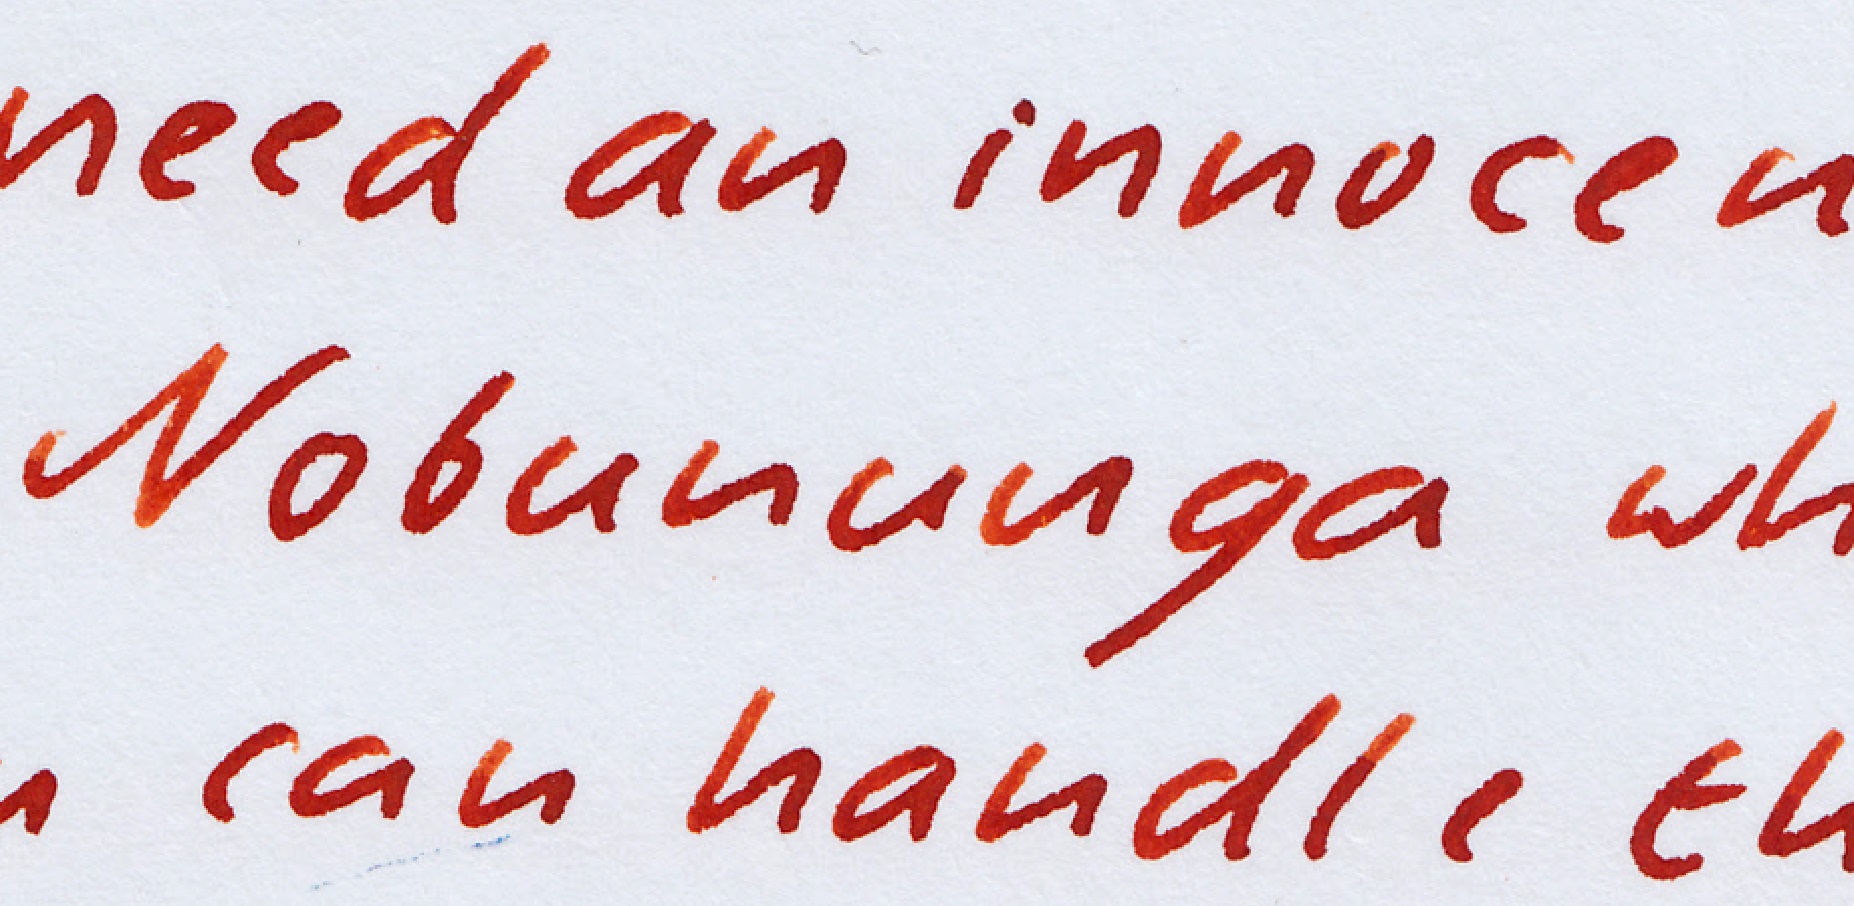 need an innocen
Nobununga wh
n can handle th